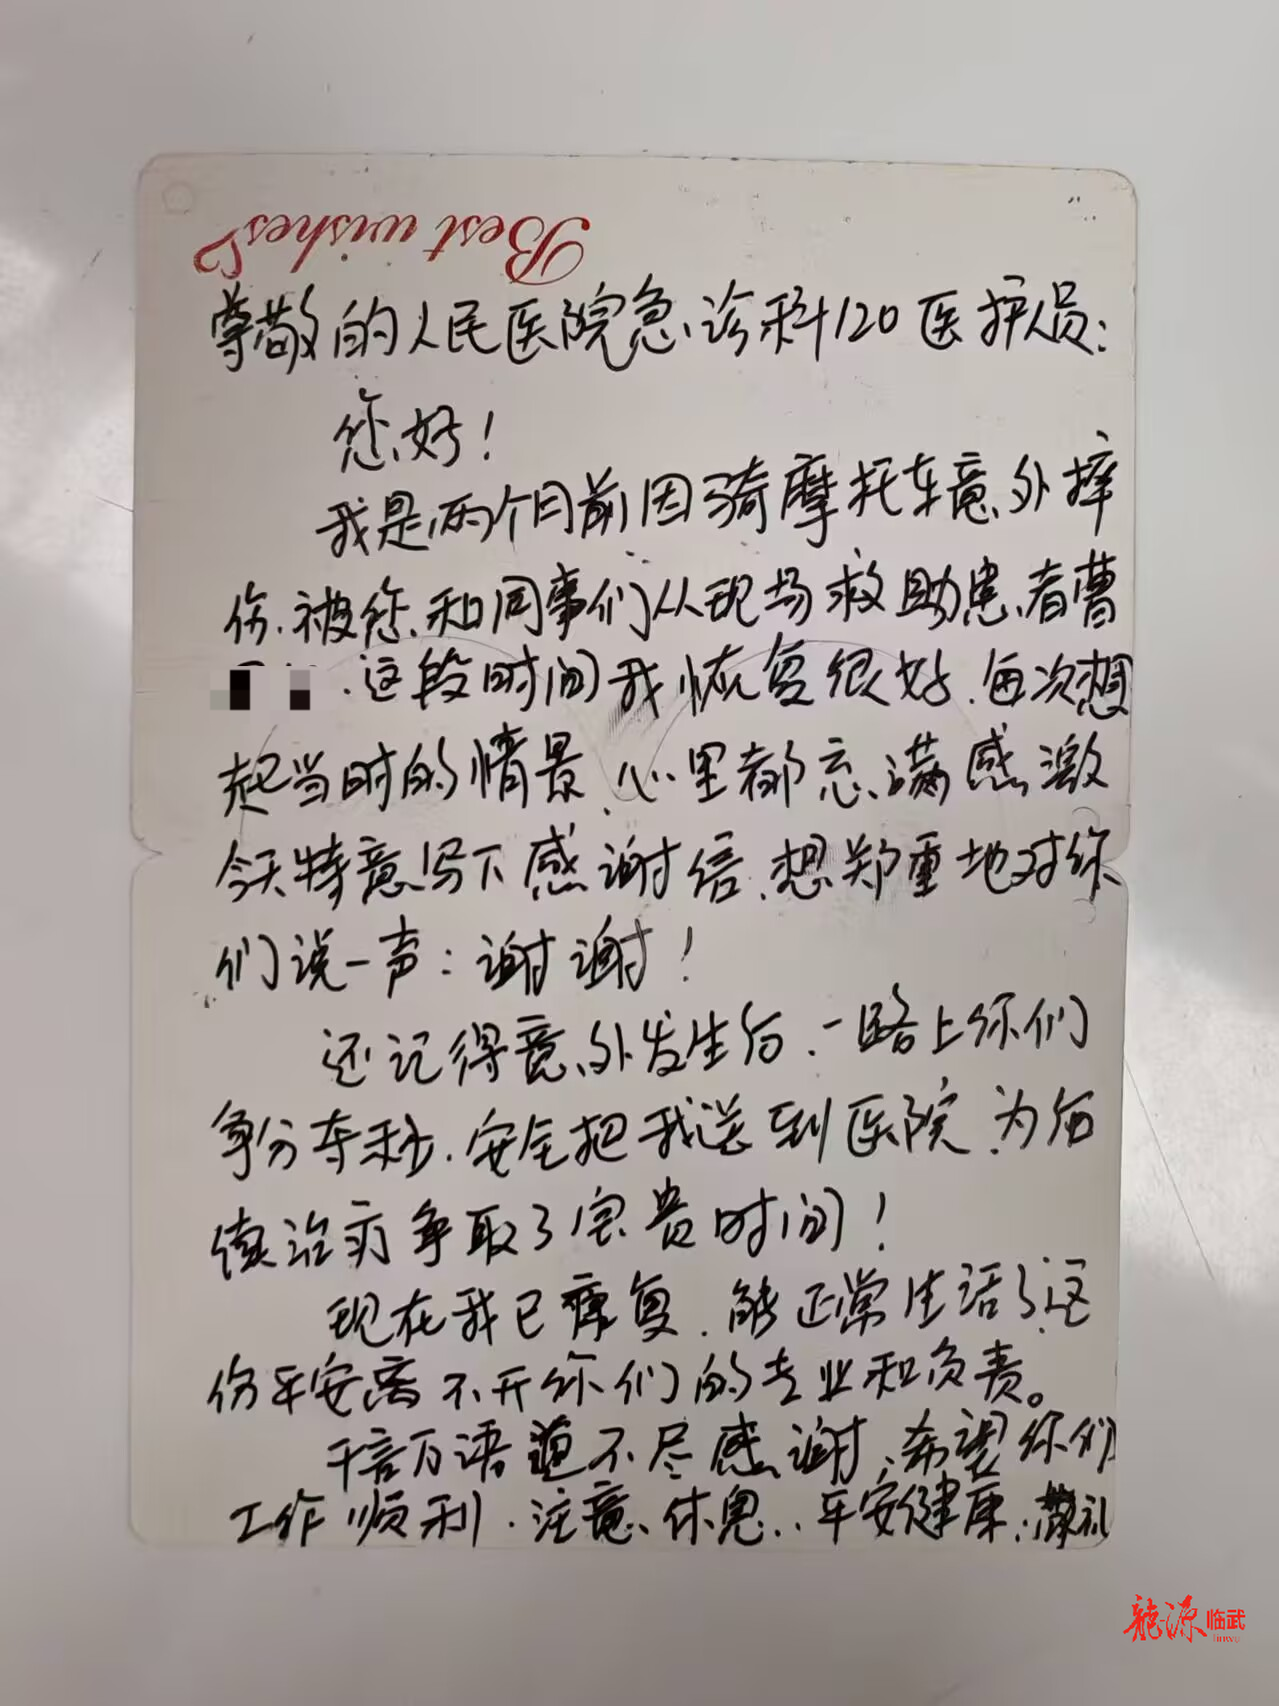 Best wishes
尊敬的人民医院急诊科120医护人员:
您好!
我是两个月前因骑摩托车意外摔
伤.被您和同事们从现场救助患者曹
.这段时间我恢复很好.每次想
起当时的情景.心里都充满感激
今天特意写下感谢信.想郑重地对你
们说一声:谢谢!
还记得意外发生后.一路上你们
争分夺秒.安全把我送到医院.为后
续治疗争取了宝贵时间!
现在我已康复.能正常生活了.这
份平安离不开你们的专业和负责。
千言万语道不尽感谢.希望你们
工作顺利.注意休息..平安健康.
龙源临武
LINWU